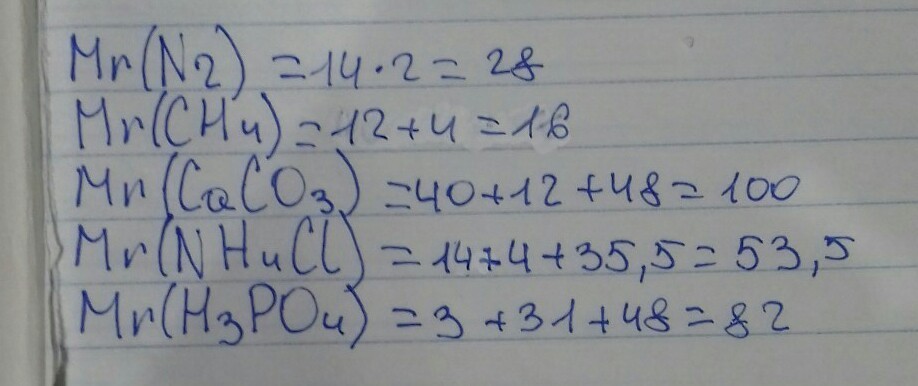 Mr(N2) = 14·2 = 28
Mr(CH4) = 12+4 = 16
Mr(CaCO3) = 40+12+48 = 100
Mr(NH4Cl) = 14+4+35,5 = 53,5
Mr(H3PO4) = 3+31+48 = 82